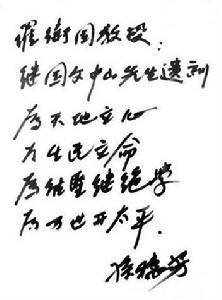 罗衡国教授:
继国父中山先生遗训
为天地立心
为生民立命
为往圣继绝学
为万世开太平.
徐